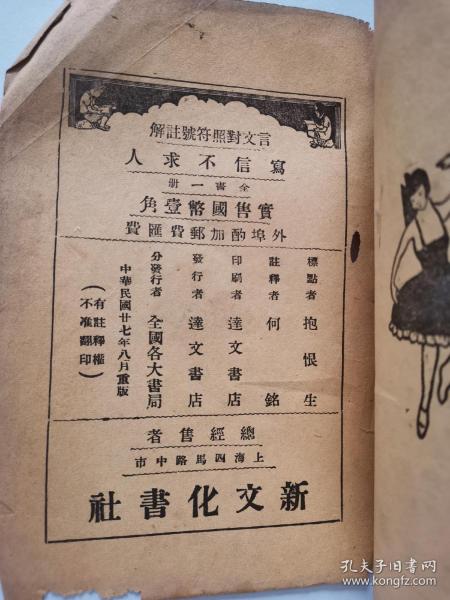 言文對照符號註解
寫信不求人
全書一冊
實售國幣壹角
外埠酌加郵費匯費
標點者 抱恨生
註釋者 何銘
印刷者 達文書店
發行者 達文書店
分發行者 全國各大書局
中華民國廿七年八月重版
（有註釋權
不准翻印）
總經售者
上海四馬路中市
新文化書社
孔夫子旧书网
www.kongfz.com